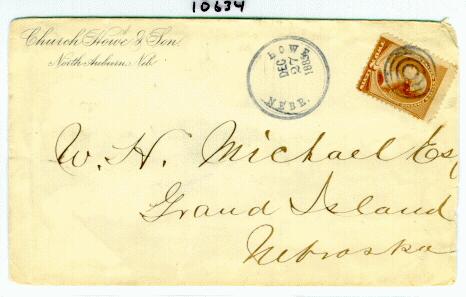 10634
Church Howe & Son.
North Auburn, Neb.
HOWE
DEC
27
1883
NEBR.
W. H. Michael Esq
Grand Island
Nebraska